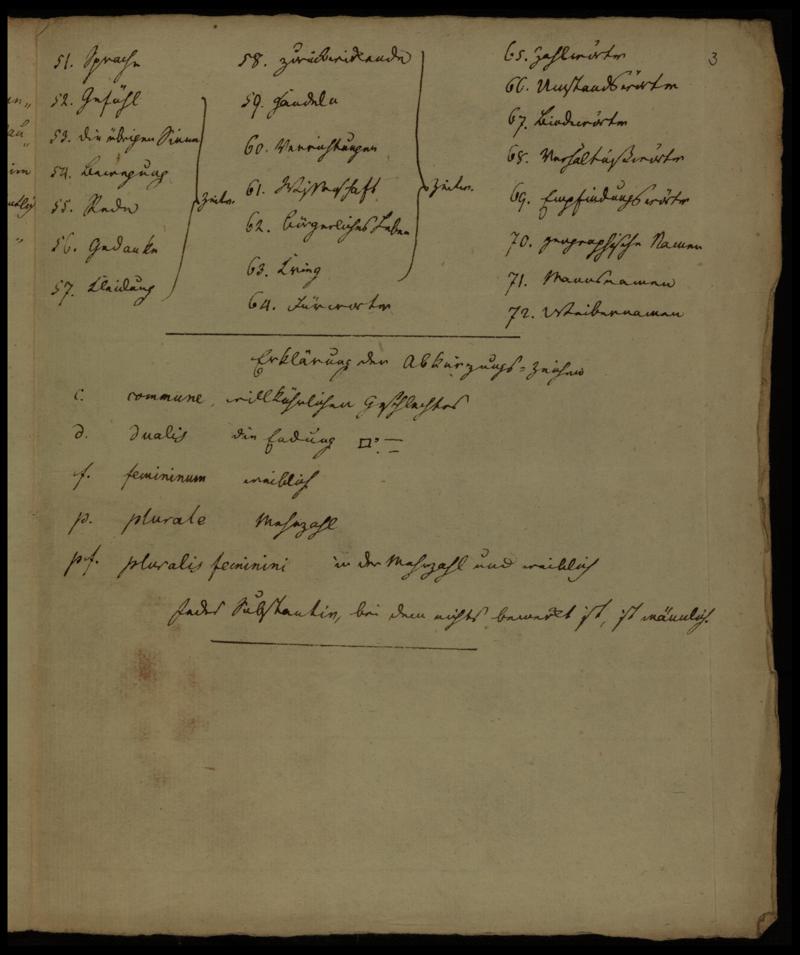 3
51. Sprache
52. Gefühl
53. die übrigen Sinne
54. Bewegung
55. Rede
56. Gedanke
57. Kleidung
Zeitw.
58. zurückwirkende
59. Handeln
60. Verrichtungen
61. Wissenschaft
62. bürgerliches Leben
63. Krieg
Zeitw.
64. Fürworte
65. Zahlwörter
66. Umstandswörter
67. Bindewörter
68. Verhältnißwörter
69. Empfindungswörter
70. geographische Namen
71. Mannsnamen
72. Weibernamen
Erklärung der Abkürzungs-Zeichen
c. commune willkührlichen Geschlechtes
d. dualis die Endung
f. femininum weiblich
p. plurale Mehrzahl
pf. pluralis feminini in der Mehrzahl und weiblich
Jedes Substantiv, bei dem nichts bemerkt ist, ist männlich.